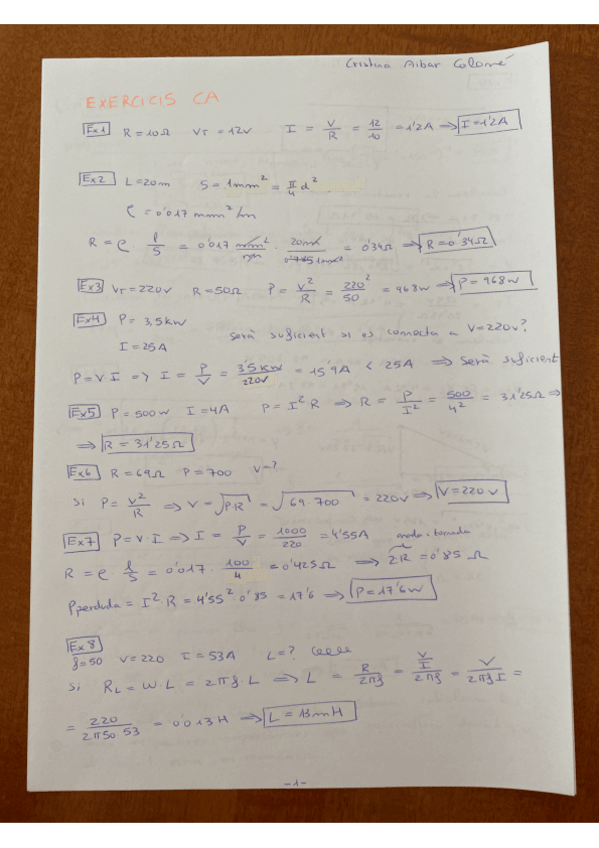 Cristina Aibar Colomé
EXERCICIS CA
Ex1 R = 10Ω VT = 12v I = V/R = 12/10 = 1'2A ⇒ I = 1'2A
Ex2 L = 20m S = 1mm² = π/4 d²
ρ = 0'017 mm²/m
R = ρ l/S = 0'017 mm²/m · 20m/0'785 1mm² = 0'34Ω ⇒ R = 0'34Ω
Ex3 VT = 220v R = 50Ω P = V²/R = 220²/50 = 968w ⇒ P = 968w
Ex4 P = 3,5kw
I = 25A serà suficient si es connecta a V = 220v?
P = V I ⇒ I = P/V = 3'5kw/220v = 15'9A < 25A ⇒ Serà suficient
Ex5 P = 500w I = 4A P = I² R ⇒ R = P/I² = 500/4² = 31'25Ω ⇒
⇒ R = 31'25Ω
Ex6 R = 69Ω P = 700 V = ?
Si P = V²/R ⇒ V = √P·R = √69·700 = 220v ⇒ V = 220v
Ex7 P = V·I ⇒ I = P/V = 1000/220 = 4'55A anada i tornada
R = ρ l/S = 0'017 · 100/4 = 0'425Ω ⇒ 2R = 0'85 Ω
Pperduda = I²·R = 4'55²·0'85 = 17'6 ⇒ P = 17'6w
Ex8
f = 50 V = 220 I = 53A L = ?
Si RL = W·L = 2πf·L ⇒ L = R/2πf = V/I/2πf = V/2πfI =
= 220/2π50·53 = 0'013H ⇒ L = 13mH
-1-